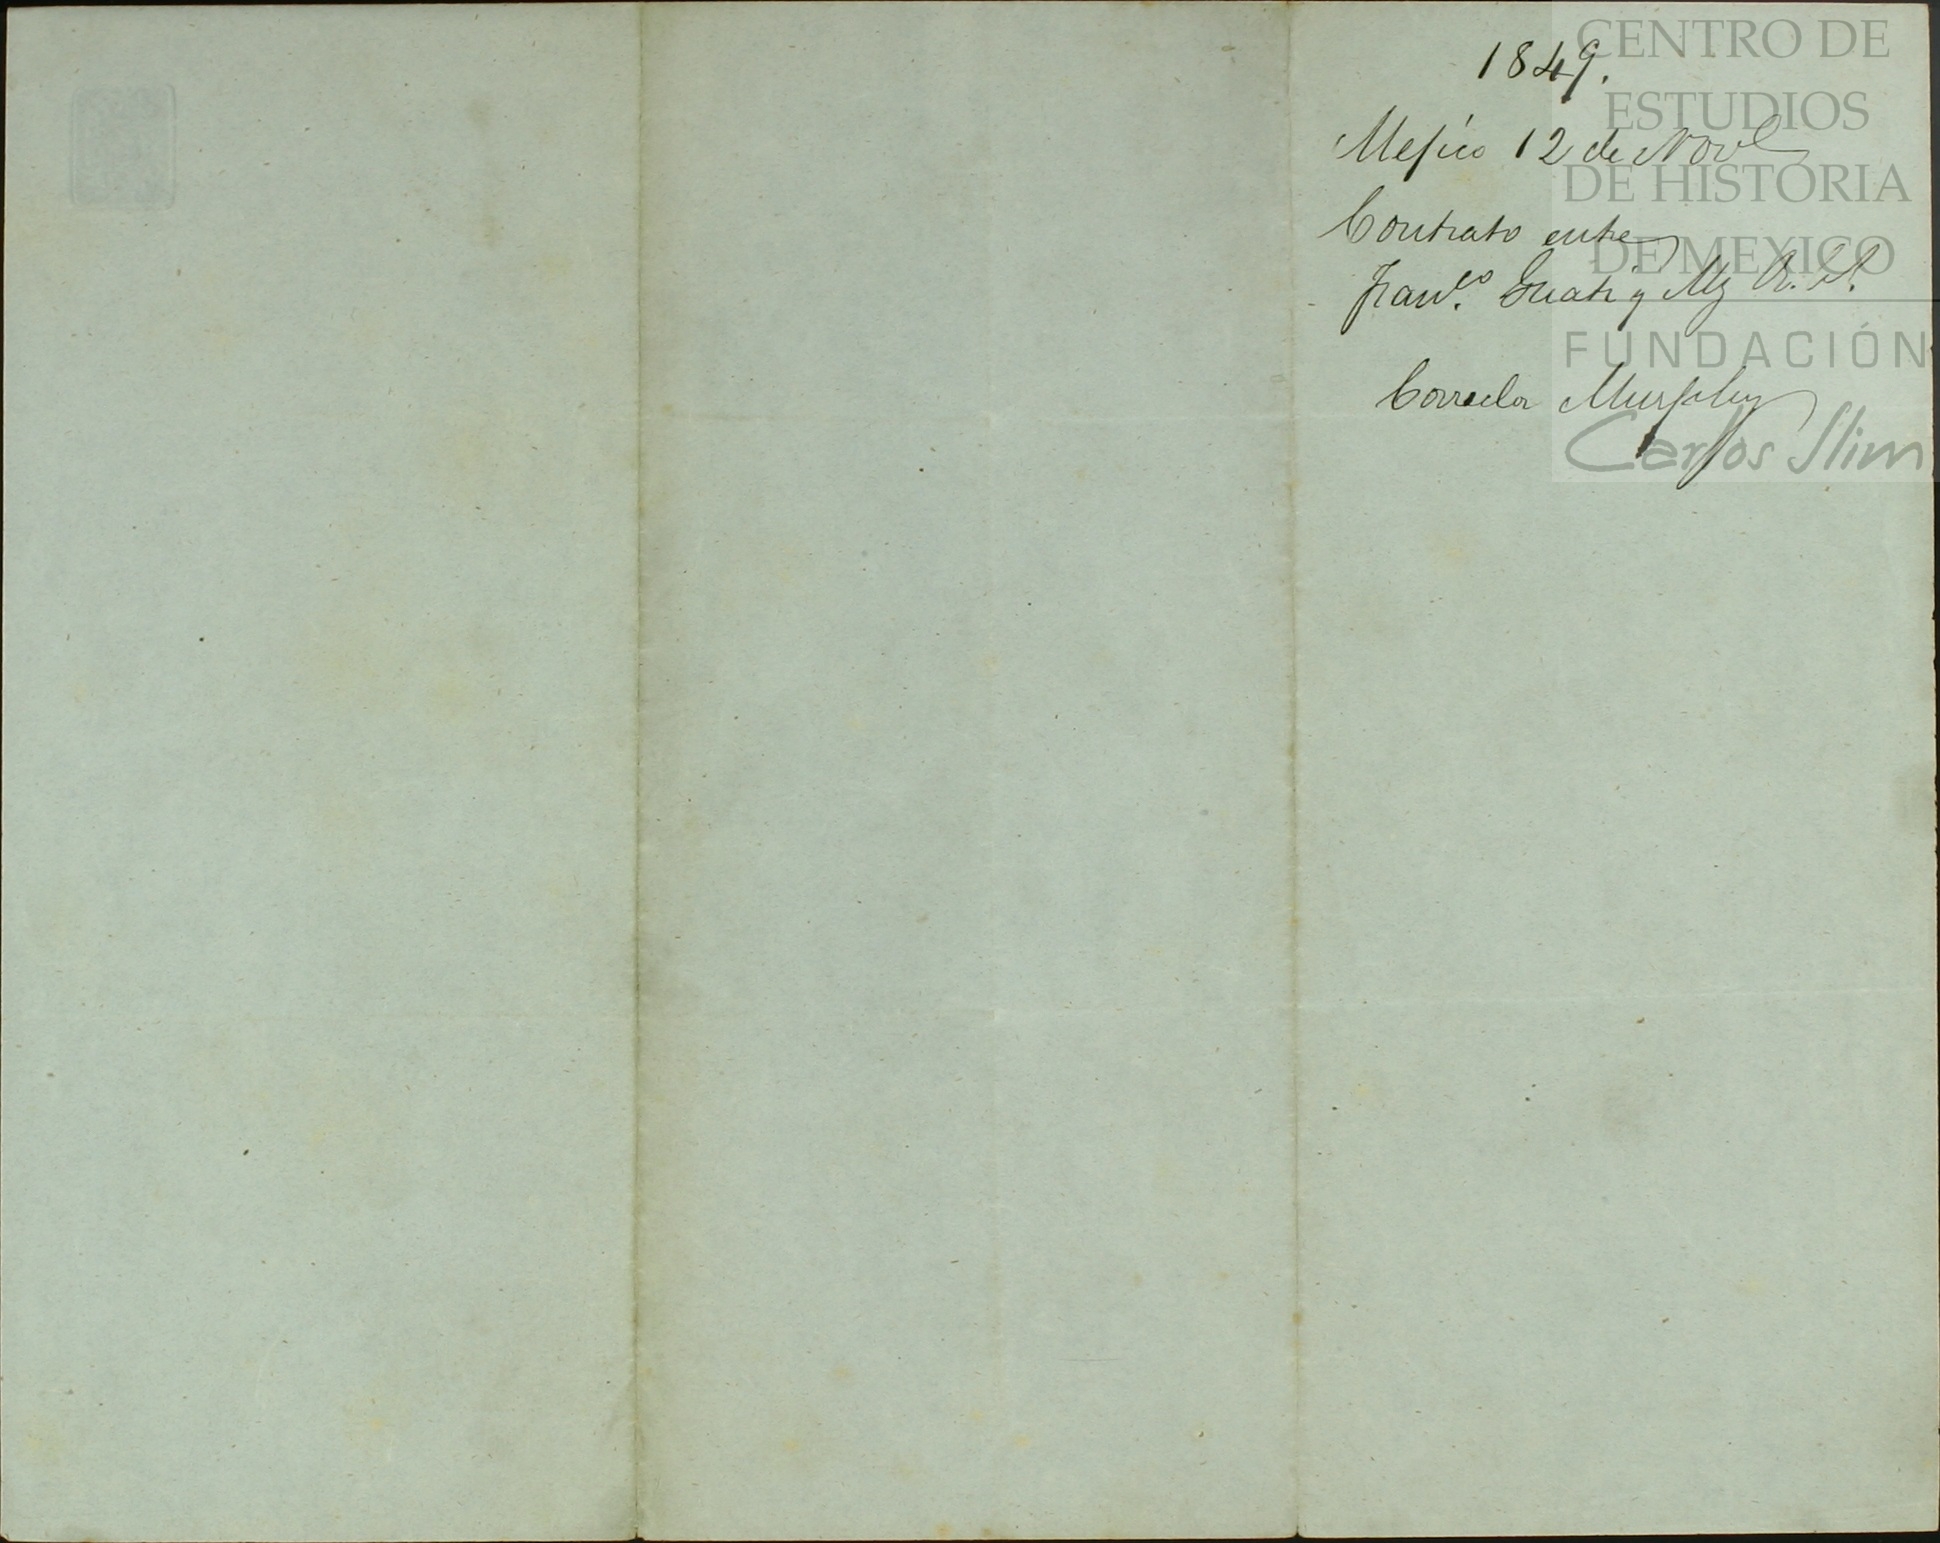 1849.
Mejico 12 de Nov
Contrato entre
Fran.co Guati y
Corredor Murphy
CENTRO DE
ESTUDIOS
DE HISTORIA
DE MEXICO
FUNDACIÓN
Carlos Slim